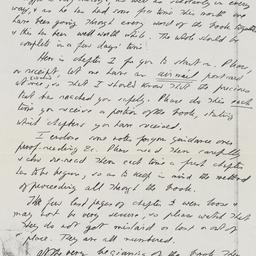 way, & so he has some free time this month we
have been going through every word of the book together
& this has been well worth while. The whole should be
complete in a few days' time.
Here is chapter I for you to start on. Please
on receipt, let me have an airmail postcard
at once, so that I should know that the precious
has reached you safely. Please do this each
time you receive a portion of the book, stating
which chapters you have received.
I enclose some notes for your guidance on
proof-reading &c. Please read them carefully
& also re-read them each time a fresh chapter
has to be begun, so as to keep in mind the method
of proceeding all through the book.
The few last pages of chapter I were loose &
may not be very secure, so please watch that
they do not get mislaid or lost or out of
place. They are all numbered.
At the very beginning of the book